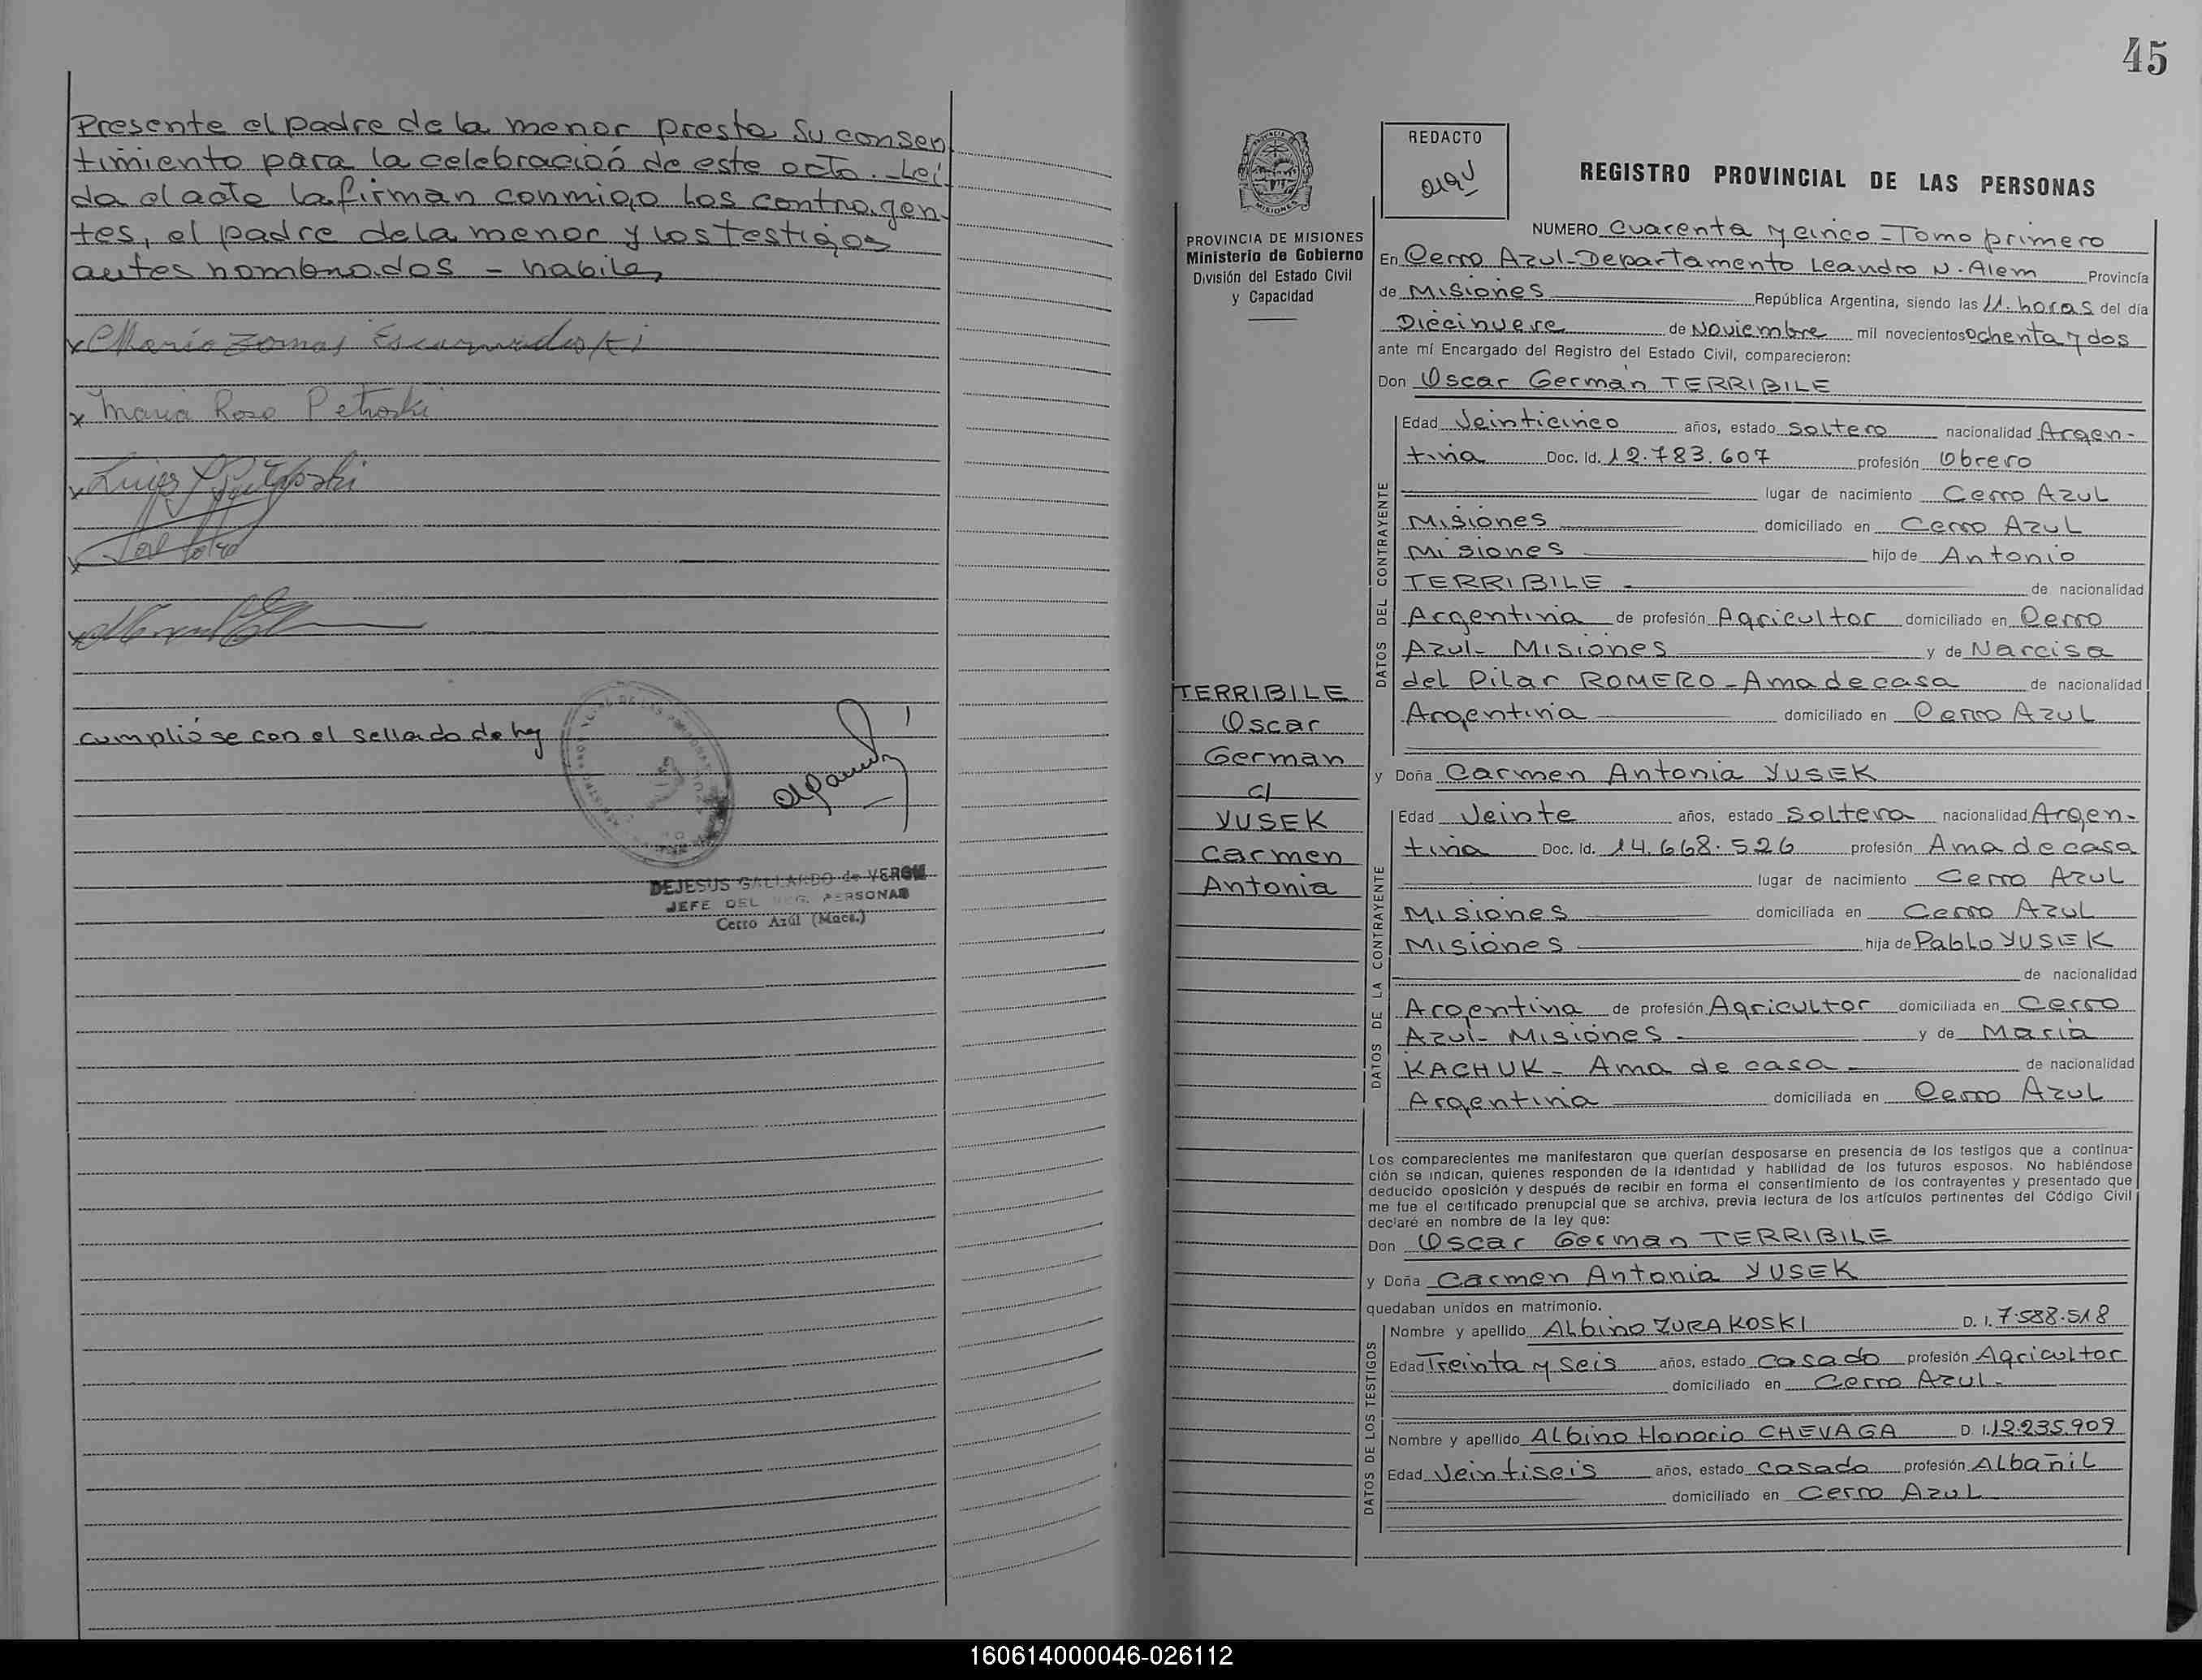 Presente el padre de la menor presta su consen
timiento para la celebración de este acto. - Leí
da el acta la firman conmigo los contrayen
tes, el padre de la menor y los testigos
antes nombrados - habiles
x Mario
x Maria Rosa Petroski
x Luis Petroski
x
x
cumplióse con el sellado de ley
DEJESUS GALLARDO de VERGU
JEFE DEL REG. PERSONAS
Cerro Azúl (Mnes.)
45
PROVINCIA DE MISIONES
Ministerio de Gobierno
División del Estado Civil
y Capacidad
TERRIBILE
Oscar
German
c/
YUSEK
Carmen
Antonia
REDACTO
REGISTRO PROVINCIAL DE LAS PERSONAS
NUMERO Cuarenta y cinco - Tomo primero
En Cerro Azul - Departamento Leandro N. Alem Provincia
de Misiones República Argentina, siendo las 11. horas del día
Diecinueve de Noviembre mil novecientos Ochenta y dos
ante mí Encargado del Registro del Estado Civil, comparecieron:
Don Oscar Germán TERRIBILE
DATOS DEL CONTRAYENTE
Edad Veinticinco años, estado soltero nacionalidad Argen-
tina Doc. Id. 12.783.607 profesión Obrero
lugar de nacimiento Cerro Azul
Misiones domiciliado en Cerro Azul
Misiones hijo de Antonio
TERRIBILE - de nacionalidad
Argentina de profesión Agricultor domiciliado en Cerro
Azul - Misiones y de Narcisa
del Pilar ROMERO - Ama de casa de nacionalidad
Argentina domiciliado en Cerro Azul
y Doña Carmen Antonia YUSEK
DATOS DE LA CONTRAYENTE
Edad Veinte años, estado soltera nacionalidad Argen-
tina Doc. Id. 14.668.526 profesión Ama de casa
lugar de nacimiento Cerro Azul
Misiones domiciliada en Cerro Azul
Misiones hija de Pablo YUSEK
de nacionalidad
Argentina de profesión Agricultor domiciliada en Cerro
Azul - Misiones - y de Maria
KACHUK - Ama de casa - de nacionalidad
Argentina domiciliada en Cerro Azul
Los comparecientes me manifestaron que querían desposarse en presencia de los testigos que a continua-
ción se indican, quienes responden de la identidad y habilidad de los futuros esposos. No habiéndose
deducido oposición y después de recibir en forma el consentimiento de los contrayentes y presentado que
me fue el certificado prenupcial que se archiva, previa lectura de los artículos pertinentes del Código Civil
declaré en nombre de la ley que:
Don Oscar German TERRIBILE
y Doña Carmen Antonia YUSEK
quedaban unidos en matrimonio.
DATOS DE LOS TESTIGOS
Nombre y apellido Albino ZURAKOSKI D. I. 7.588.518
Edad Treinta y seis años, estado casado profesión Agricultor
domiciliado en Cerro Azul -
Nombre y apellido Albino Honorio CHEVAGA D. I. 12.235.909
Edad Veintiseis años, estado casado profesión Albañil
domiciliado en Cerro Azul
160614000046-026112